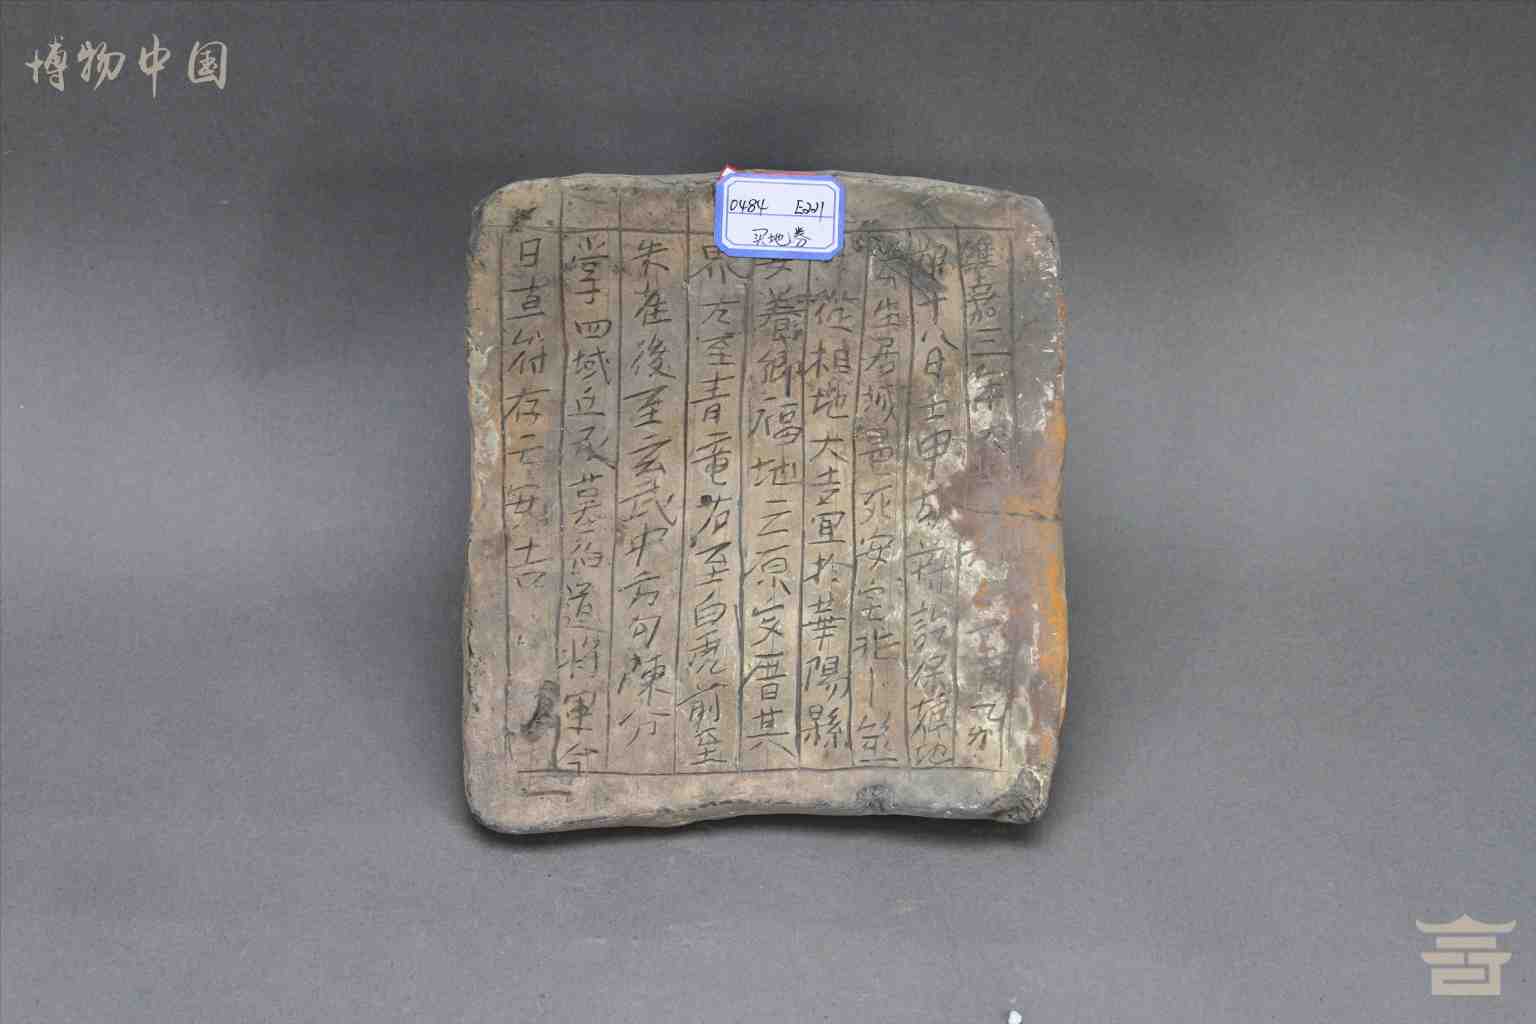 博物中国
0484 E221
买地券
嘉三年
十八日壬申 保 地
生居城邑死安宅兆卜筮
從相地大吉宜於華陽縣
安養鄉福地之原 厝其
界左至青竜右至白虎前至
朱雀後至玄武中方勾陳分
掌四域丘丞墓伯道將軍今
日直符存亡安吉